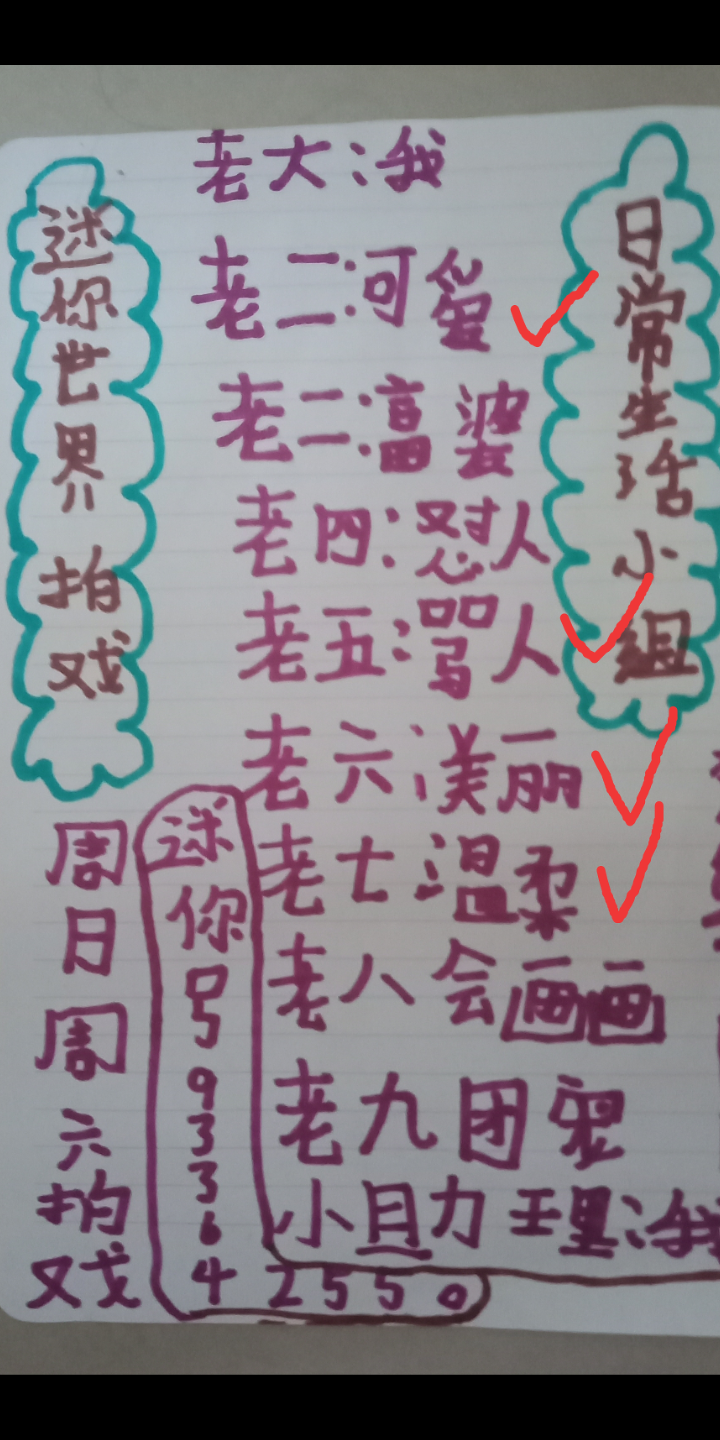 老大:我
老二:可爱
老二:富婆
老四:怼人
老五:骂人
老六:美丽
老七:温柔
老八会画画
老九团宠
小助理:我
迷你世界拍戏
日常生活小组
周日周六拍戏
迷你号933642550